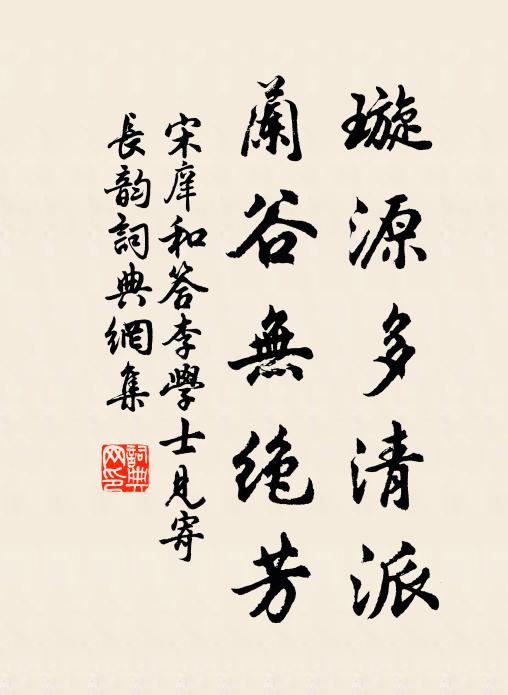 璇源多清派
蘭谷無絶芳
宋庠和答李學士見寄
長韵詞典網集
詞典网印